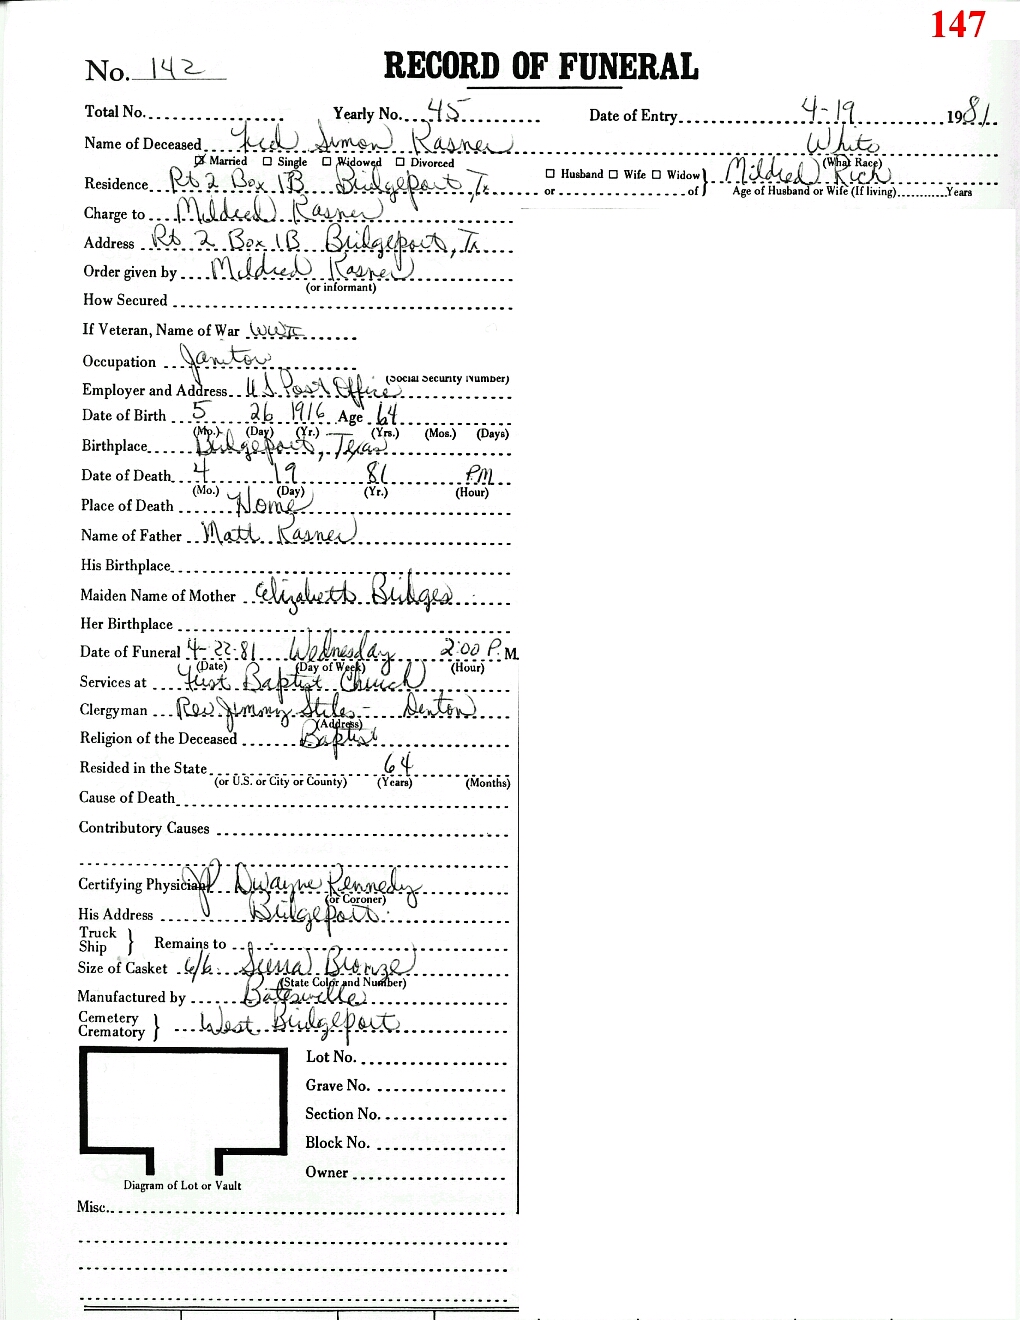 147
No. 142 RECORD OF FUNERAL
Total No. Yearly No. 45 Date of Entry 4-19 1981
Name of Deceased Simon Kasner White
☒ Married ☐ Single ☐ Widowed ☐ Divorced (What Race)
Residence Rt 2 Box 1B Bridgeport, Tx ☐ Husband ☐ Wife ☐ Widow or of } Mildred Rich
Age of Husband or Wife (If living) Years
Charge to Mildred Kasner
Address Rt 2 Box 1B Bridgeport, Tx
Order given by Mildred Kasner
(or informant)
How Secured
If Veteran, Name of War WWII
Occupation Janitor
(Social Security Number)
Employer and Address U.S. Post Office
Date of Birth 5 26 1916 Age 64
(Mo.) (Day) (Yr.) (Yrs.) (Mos.) (Days)
Birthplace Bridgeport, Texas
Date of Death 4 19 81 PM
(Mo.) (Day) (Yr.) (Hour)
Place of Death Home
Name of Father Matt Kasner
His Birthplace
Maiden Name of Mother Elizabeth Bridges
Her Birthplace
Date of Funeral 4-22-81 Wednesday 2:00 P. M.
(Date) (Day of Week) (Hour)
Services at First Baptist Church
Clergyman Rev Jimmy Stiles - Denton
(Address)
Religion of the Deceased Baptist
Resided in the State 64
(or U.S. or City or County) (Years) (Months)
Cause of Death
Contributory Causes
Certifying Physician JP Dwayne Kennedy
(or Coroner)
His Address Bridgeport
Truck Ship } Remains to
Size of Casket 6/6 Sierra Bronze
(State Color and Number)
Manufactured by Batesville
Cemetery Crematory } West Bridgeport
Lot No.
Grave No.
Section No.
Block No.
Owner
Diagram of Lot or Vault
Misc.